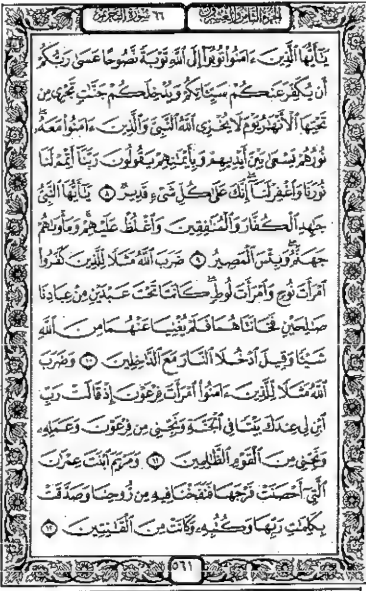 الجزء الثامن والعشرون ٦٦ سورة التحريم
يَٰٓأَيُّهَا ٱلَّذِينَ ءَامَنُوا۟ تُوبُوٓا۟ إِلَى ٱللَّهِ تَوْبَةً نَّصُوحًا عَسَىٰ رَبُّكُمْ
أَن يُكَفِّرَ عَنكُمْ سَيِّـَٔاتِكُمْ وَيُدْخِلَكُمْ جَنَّٰتٍ تَجْرِى مِن
تَحْتِهَا ٱلْأَنْهَٰرُ يَوْمَ لَا يُخْزِى ٱللَّهُ ٱلنَّبِىَّ وَٱلَّذِينَ ءَامَنُوا۟ مَعَهُۥ
نُورُهُمْ يَسْعَىٰ بَيْنَ أَيْدِيهِمْ وَبِأَيْمَٰنِهِمْ يَقُولُونَ رَبَّنَآ أَتْمِمْ لَنَا
نُورَنَا وَٱغْفِرْ لَنَآ إِنَّكَ عَلَىٰ كُلِّ شَىْءٍ قَدِيرٌ ٨ يَٰٓأَيُّهَا ٱلنَّبِىُّ
جَٰهِدِ ٱلْكُفَّارَ وَٱلْمُنَٰفِقِينَ وَٱغْلُظْ عَلَيْهِمْ وَمَأْوَىٰهُمْ
جَهَنَّمُ وَبِئْسَ ٱلْمَصِيرُ ٩ ضَرَبَ ٱللَّهُ مَثَلًا لِّلَّذِينَ كَفَرُوا۟
ٱمْرَأَتَ نُوحٍ وَٱمْرَأَتَ لُوطٍ كَانَتَا تَحْتَ عَبْدَيْنِ مِنْ عِبَادِنَا
صَٰلِحَيْنِ فَخَانَتَاهُمَا فَلَمْ يُغْنِيَا عَنْهُمَا مِنَ ٱللَّهِ
شَيْـًٔا وَقِيلَ ٱدْخُلَا ٱلنَّارَ مَعَ ٱلدَّٰخِلِينَ ١٠ وَضَرَبَ
ٱللَّهُ مَثَلًا لِّلَّذِينَ ءَامَنُوا۟ ٱمْرَأَتَ فِرْعَوْنَ إِذْ قَالَتْ رَبِّ
ٱبْنِ لِى عِندَكَ بَيْتًا فِى ٱلْجَنَّةِ وَنَجِّنِى مِن فِرْعَوْنَ وَعَمَلِهِۦ
وَنَجِّنِى مِنَ ٱلْقَوْمِ ٱلظَّٰلِمِينَ ١١ وَمَرْيَمَ ٱبْنَتَ عِمْرَٰنَ
ٱلَّتِىٓ أَحْصَنَتْ فَرْجَهَا فَنَفَخْنَا فِيهِ مِن رُّوحِنَا وَصَدَّقَتْ
بِكَلِمَٰتِ رَبِّهَا وَكُتُبِهِۦ وَكَانَتْ مِنَ ٱلْقَٰنِتِينَ ١٢
٥٦١